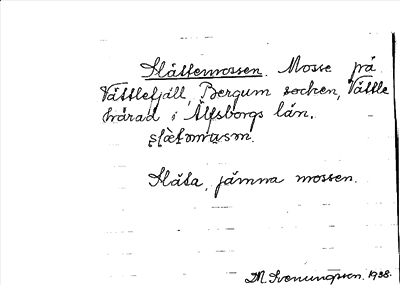 Slättemossen. Mosse på
Vättlefjäll, Bergum socken, Vättle
härad i Älfsborgs län.
Släta, jämna mossen.
M. Svenungsson. 1938.